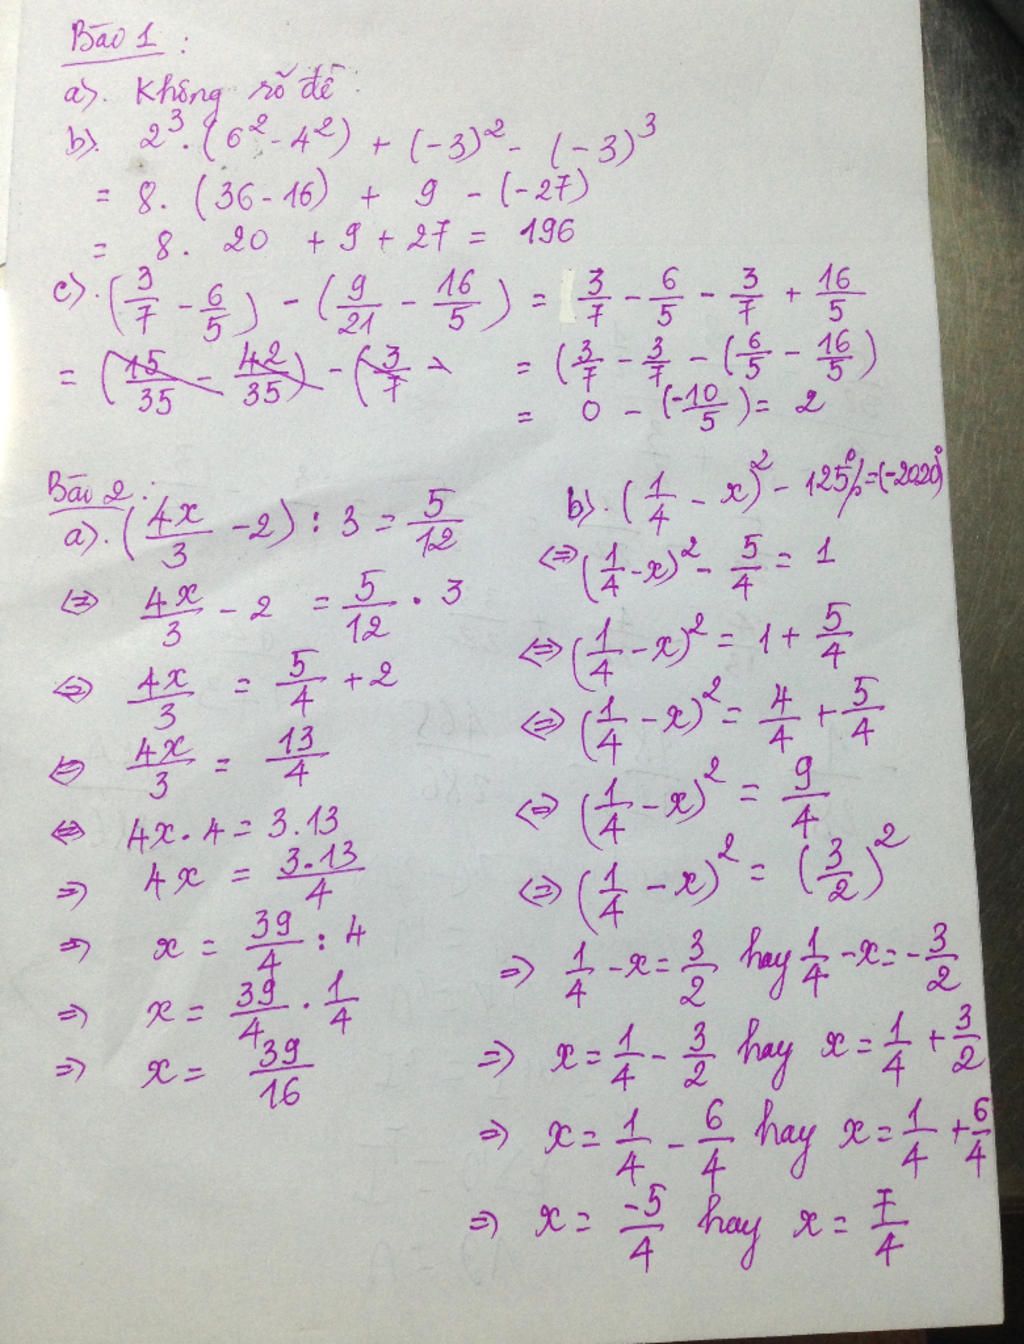 Bài 1 :
a). Không rõ đề
b). 2³ . (6² - 4²) + (-3)² - (-3)³
= 8. (36 - 16) + 9 - (-27)
= 8. 20 + 9 + 27 = 196
c). (3/7 - 6/5) - (9/21 - 16/5) = 3/7 - 6/5 - 3/7 + 16/5
= (15/35 - 42/35) - (3/7 - = (3/7 - 3/7 - (6/5 - 16/5)
= 0 - (-10/5) = 2
Bài 2 :
a). (4x/3 - 2) : 3 = 5/12
⇔ 4x/3 - 2 = 5/12 . 3
⇔ 4x/3 = 5/4 + 2
⇔ 4x/3 = 13/4
⇔ 4x . 4 = 3.13
⇒ 4x = 3.13/4
⇒ x = 39/4 : 4
⇒ x = 39/4 . 1/4
⇒ x = 39/16
b). (1/4 - x)² - 125% = (-2020)⁰
⇔ (1/4 - x)² - 5/4 = 1
⇔ (1/4 - x)² = 1 + 5/4
⇔ (1/4 - x)² = 4/4 + 5/4
⇔ (1/4 - x)² = 9/4
⇔ (1/4 - x)² = (3/2)²
⇒ 1/4 - x = 3/2 hay 1/4 - x = -3/2
⇒ x = 1/4 - 3/2 hay x = 1/4 + 3/2
⇒ x = 1/4 - 6/4 hay x = 1/4 + 6/4
⇒ x = -5/4 hay x = 7/4